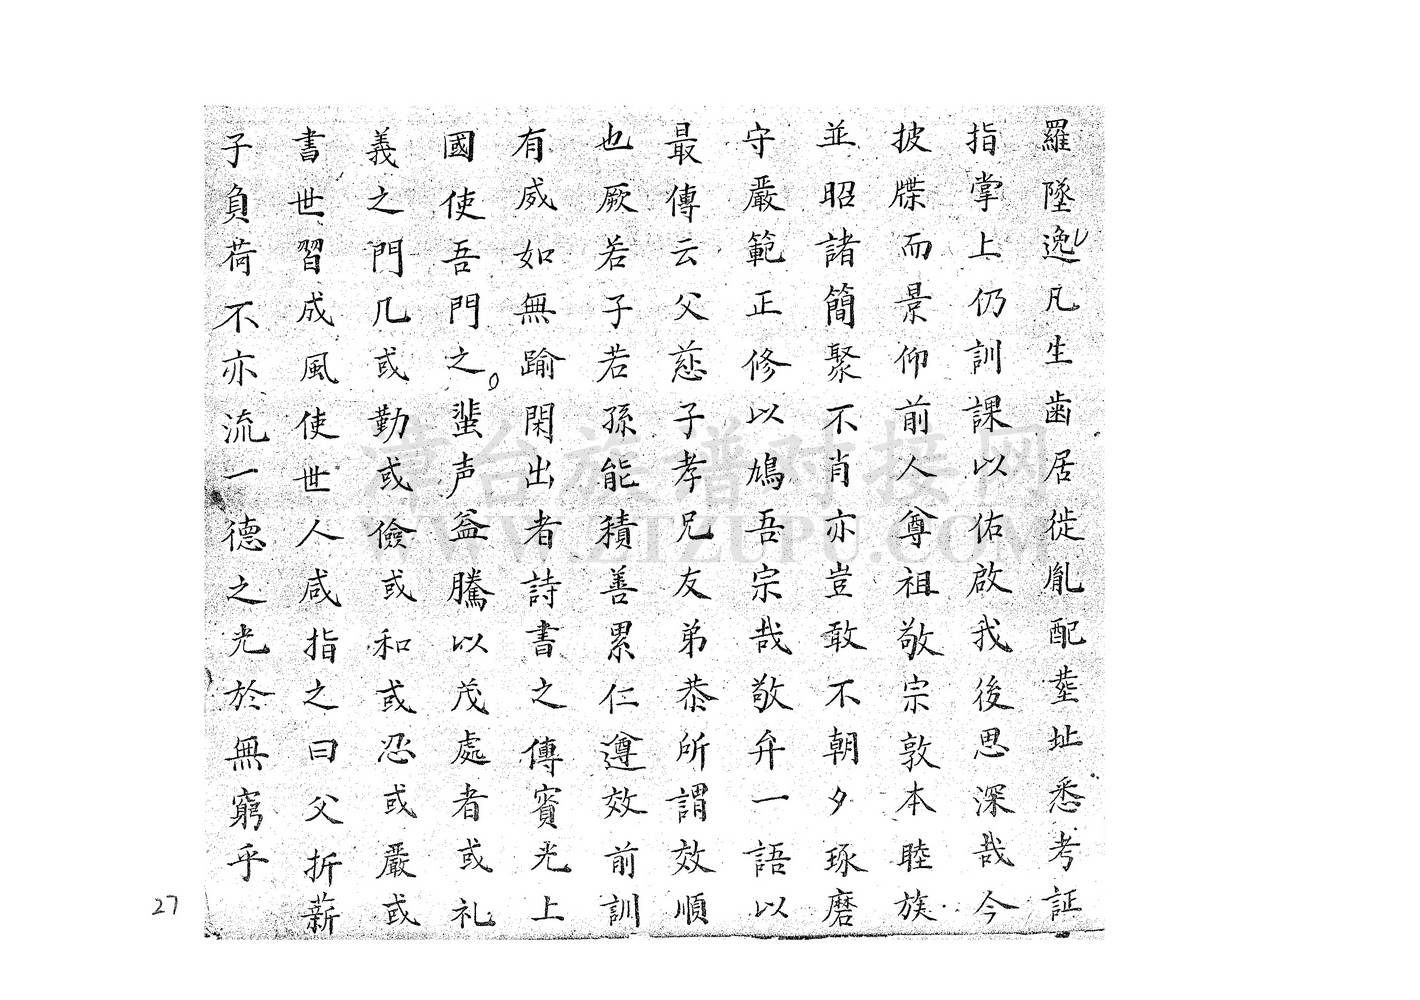 羅墜逸凡生齒居徙胤配塟址悉考証
指掌上仍訓課以佑啟我後思深哉今
披牒而景仰前人尊祖敬宗敦本睦族
並昭諸簡聚不肖亦豈敢不朝夕琢磨
守嚴範正修以鳩吾宗哉敬弁一語以
最傳云父慈子孝兄友弟恭所謂效順
也厥若子若孫能積善累仁遵效前訓
有威如無踰閑出者詩書之傳賓光上
國使吾門之蜚声益騰以茂處者或礼
義之門几或勤或儉或和或忍或嚴或
書世習成風使世人咸指之曰父折薪
子負荷不亦流一德之光於無窮乎
27
漳台族谱对接网
WWW.ZTZUPU.COM